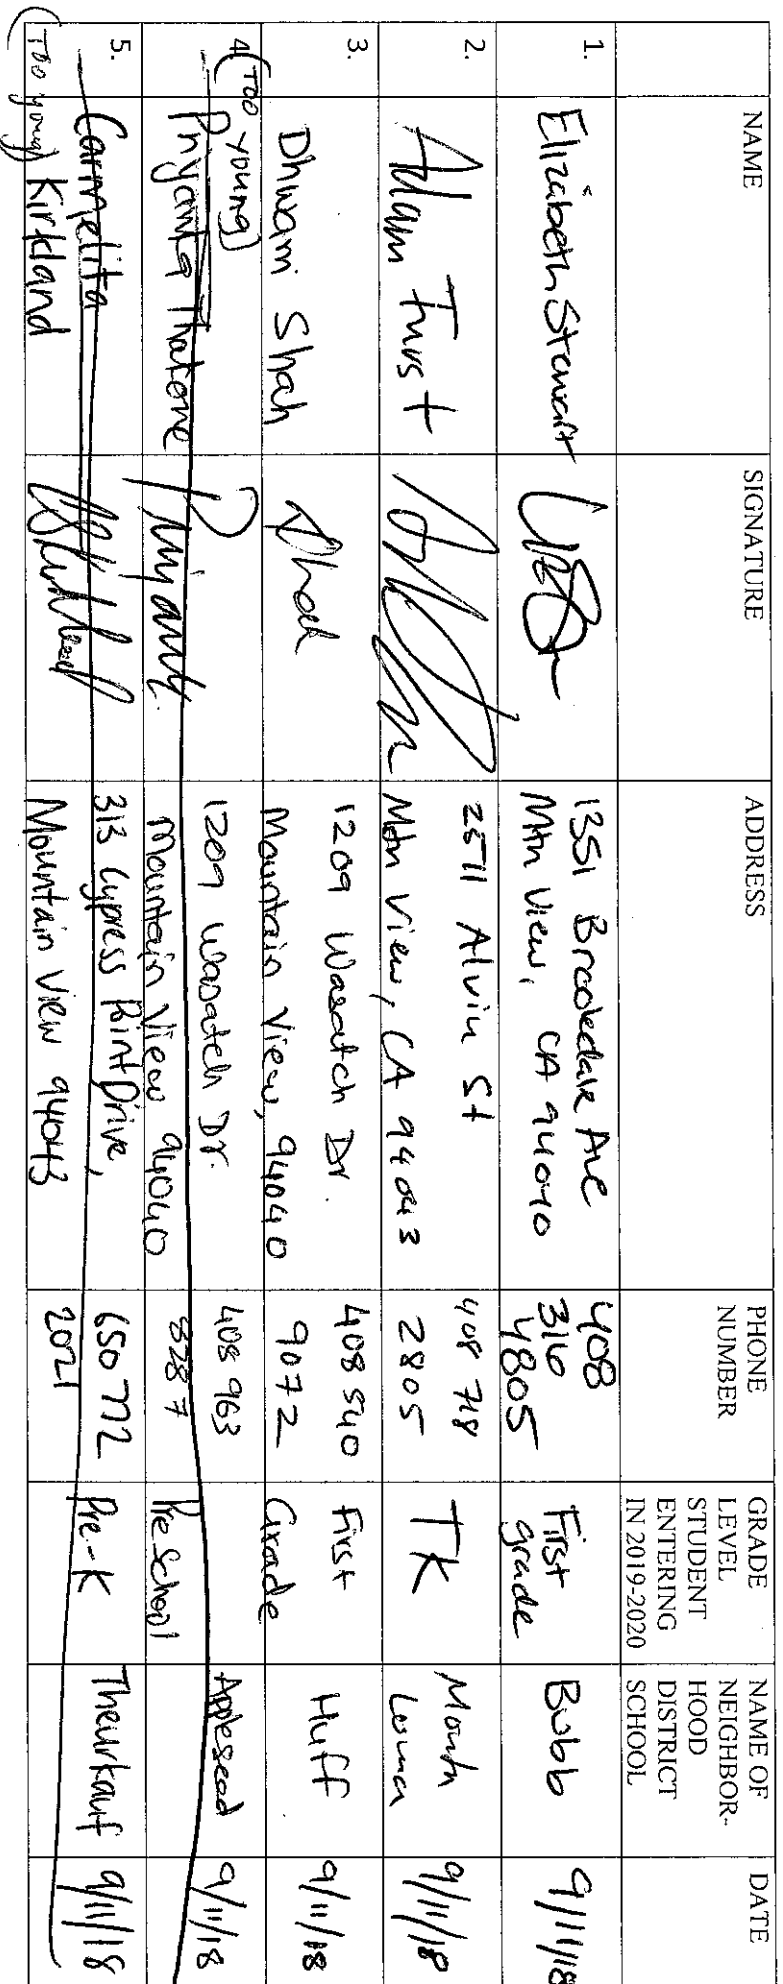 NAME
SIGNATURE
ADDRESS
PHONE
NUMBER
GRADE
LEVEL
STUDENT
ENTERING
IN 2019-2020
NAME OF
NEIGHBOR-
HOOD
DISTRICT
SCHOOL
DATE
1.
Elizabeth Stewart
1351 Brookdale Ave
Mtn View, CA 94040
408
316
4805
First
grade
Bubb
9/11/18
2.
Adam Furst
2511 Alvin St
Mtn View, CA 94043
408 718
2805
TK
Monta
Loma
9/11/18
3.
Dhwani Shah
1209 Wasatch Dr.
Mountain View, 94040
408 540
9072
First
Grade
Huff
9/11/18
4.
(Too young)
Priyanka Thatone
1209 Wasatch Dr.
Mountain View 94040
408 963
8287
Preschool
Appleseed
9/11/18
5.
Carmelita
Kirkland
(Too young)
313 Cypress Point Drive,
Mountain View 94043
650 772
2021
Pre-K
Theurkauf
9/11/18